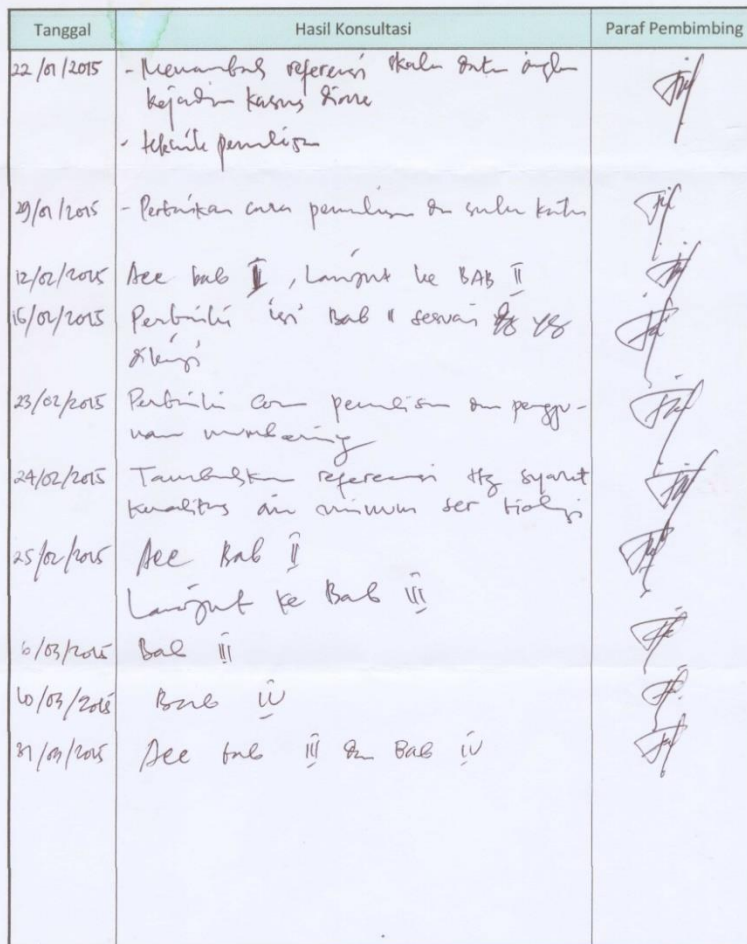 Tanggal Hasil Konsultasi Paraf Pembimbing
22/01/2015 - Menambah referensi skala data angka
kejadian kasus diare
- teknik penulisan
29/01/2015 - Perbaikan cara penulisan dn suku kata
12/02/2015 Acc bab I, Lanjut ke BAB II
16/02/2015 Perbaiki isi Bab II sesuai yg
23/02/2015 Perbaiki cara penulisan dn penggu-
naan numbering
24/02/2015 Tambahkan referensi ttg syarat
kualitas air minum ser biologi
25/02/2015 Acc Bab II
Lanjut ke Bab III
6/03/2015 Bab III
10/03/2015 Bab IV
31/03/2015 Acc bab III dn Bab IV